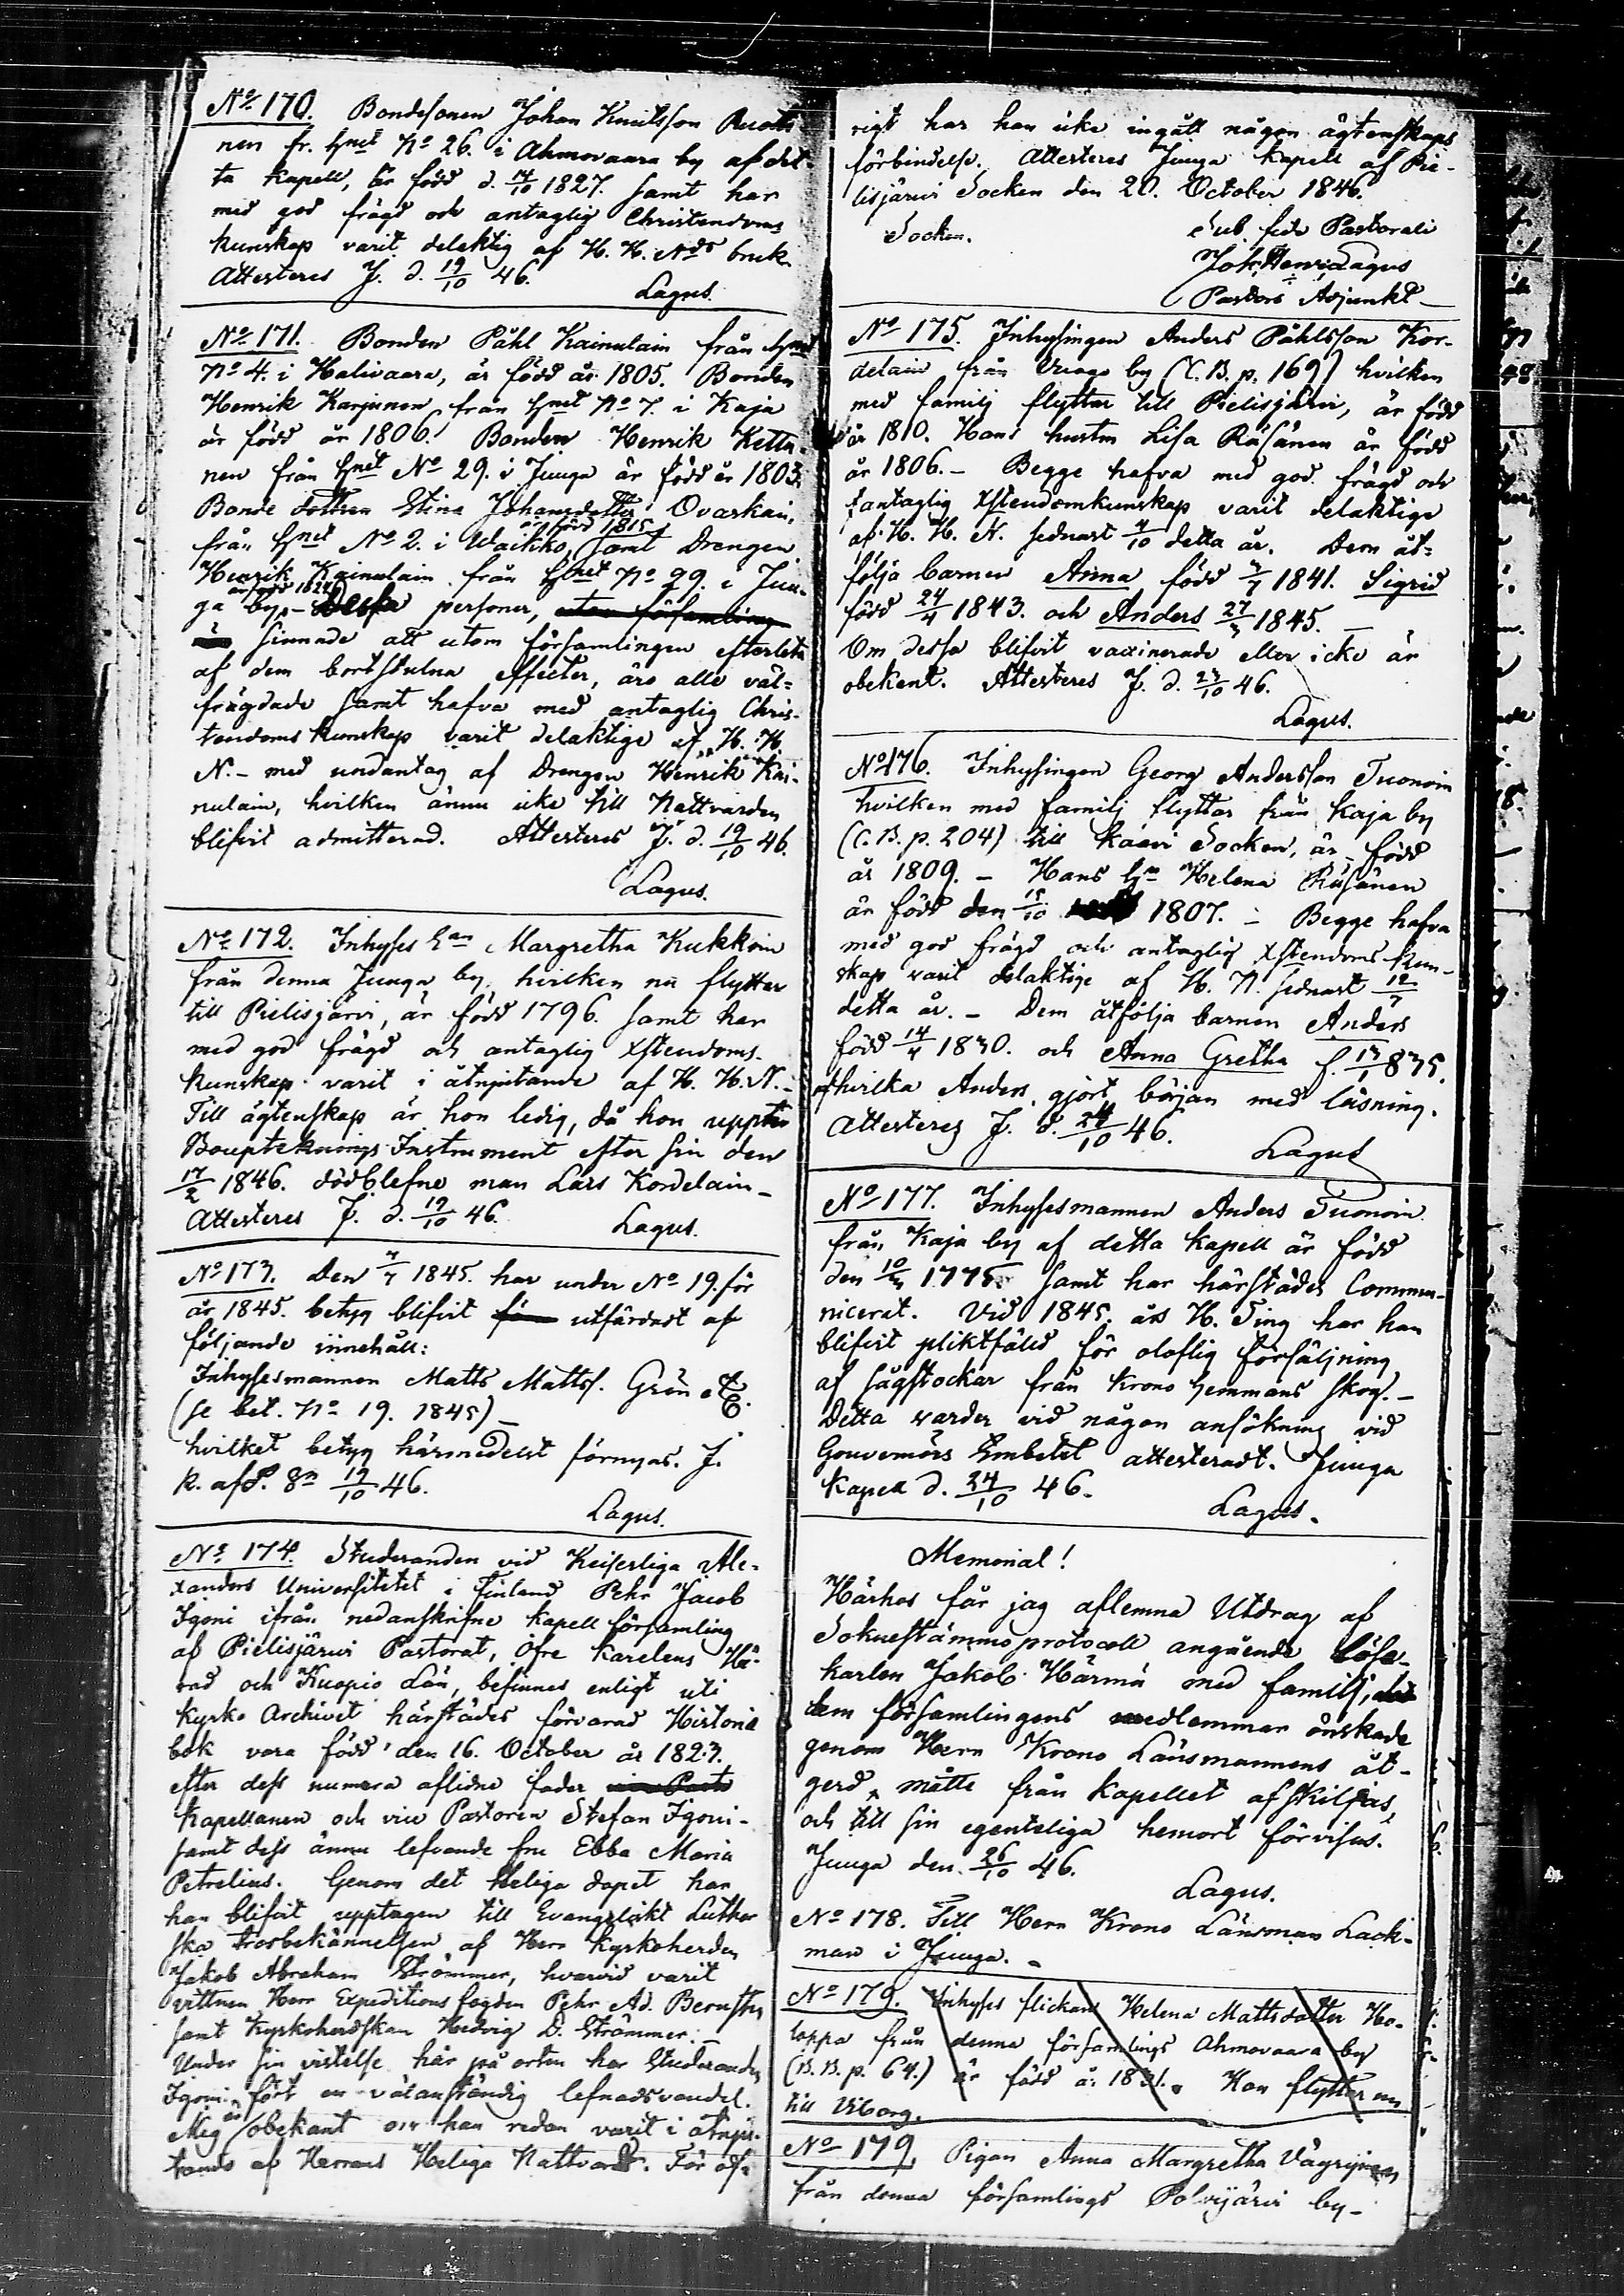 No 170. Bondesonen Johan Knutsson Ruotti
nen fr. hmt No 26. i Ahmovaara by af det-
ta kapell, är född d. 14/10 1827. samt har
med god frägd och antaglig Christendoms
kunskap varit delaktig af H. H. Nds bruk.
Attesteres J. d. 19/10 46.
Lagus.
No 171. Bonden Påhl Kainulain från hmt
No 4. i Halivaara, är född år 1805. Bonden
Henrik Karjunen från hmt No 7. i Kaja
är född år 1806. Bonden Henrik Kettu-
nen från hmt No 29. i Juuga är född år 1803.
Bonde dottren Stina Johansdotter Ovaskai,
är född 1815
från hmt No 2. i Waikko, samt Drengen
Henrik Kainulain från hmt No 29. i Juu-
ga by, Dessa personer, utom församling
sinnade att utom församlingen efterleta
af dem bortstulna effecter, äro alla väl-
frägdade samt hafva med antaglig Chris-
tendoms kunskap varit delaktige af H. H.
N. - med undantag af Drengen Henrik Kai-
nulain, hvilken ännu icke till Nattvarden
blifvit admitterad. Attesteres J. d. 19/10 46.
Lagus.
No 172. Inhyses Margretha Kukkoin
från denna Juuga by, hvilken nu flyttar
till Pielisjärvi, är född 1796. samt har
med god frägd och antaglig Xstendoms-
kunskap varit i åtnjutande af H. H. N. -
Till ägtenskap är hon ledig, då hon uppter
Bouptecknings Instrument efter sin den
17/2 1846. dödblefne man Lars Kordelain -
Attesteres J. d. 19/10 46.
Lagus.
No 173. Den 4/7 1845. har under No 19. för
år 1845. betyg blifvit utfärdadt af
följande innehåll:
Inhysesmannen Matts Mattss. Grön &c.
(se bet. No 19. 1845) -
hvilket betyg härmedelst förnyas. J.
k. af P. Sn 19/10 46.
Lagus.
No 174. Studeranden vid Keiserliga Ale-
xanders Universitetet i Finland Pehr Jacob
Igoni ifrån nedanskrifne kapell församling
af Pielisjärvi Pastorat, Öfre Karelens Hä-
rad och Kuopio Län, befinnes enligt uti
kyrko Archivet härstädes förvarad Historie
bok vara född den 16. October år 1823.
efter dess numera aflidne fader
Kapellanen och vice Pastoren Stefan Igoni -
samt dess ännu lefvande fru Ebba Maria
Petrelius. Genom det Heliga dopet har
han blifvit upptagen till Evangeliskt Luther
ska trosbekännelsen af Herr Kyrkoherden
Jakob Abraham Strömmer, hvarvid varit
vittnen Herr Expeditions fogden Pehr Ad.
samt Kyrkoherdskan Hedvig D. Strömmer. -
Under sin vistelse här på orten har Studeranden
Igoni fört en väl anständig lefnadsvandel.
Mig är obekant om han redan varit i åtnju-
tande af Herrans Heliga Nattvard. För öf-
rigt har han icke ingått någon ägtenskaps
förbindelse. Attesteres Juuga kapell af Pie-
lisjärvi Socken den 20. October 1846.
Socken.
Sub fide Pastorali
Joh. Henr. Lagus
Pastors Adjunkt
No 175. Inhysingen Anders Påhlsson Kor-
delain från by (C. B. p. 169) hvilken
med familj flyttar till Pielisjärvi, är född
år 1810. Hans hustru Lisa Räsänen är född
år 1806. - Begge hafva med god frägd och
antaglig Xstendomkunskap varit delaktige
af H. H. N. sednast 4/10 detta år. Dem åt-
följa barnen Anna född 3/7 1841. Sigrid
född 24/4 1843. och Anders 27/3 1845. -
Om dessa blifvit vaccinerade eller icke är
obekant. Attesteres J. d. 23/10 46.
Lagus.
No 176. Inhysingen Georg Andersson Tuonoin
hvilken med familj flyttar från Kaja by
(C. B. p. 204) till Kaavi Socken, är född
år 1809. - Hans Helena Räsänen
är född den 15/10 1807. - Begge hafva
med god frägd och antaglig Xstendoms kun-
skap varit delaktige af H. N. sednast 12/7
detta år. - Dem åtfölja barnen Anders
född 14/4 1830. och Anna Gretha f. 13/1 835.
af hvilka Anders gjort början med läsning.
Attesteres J. d. 24/10 46.
Lagus
No 177. Inhysesmannen Anders Tuonoin
från Kaja by af detta kapell är född
den 10/3 1775. samt har härstädes Commu-
nicerat. Vid 1845. års H. Ting har han
blifvit pliktfäld för oloflig försäljning
af sågstockar från krono hemmans skog. -
Detta varder vid någon ansökning vid
Gouvernörs Embetet attesteradt. Juuga
kapell d. 24/10 46.
Lagus.
Memorial!
Härhos får jag aflemna Utdrag af
Sokne stämmo protocoll angående lösa-
karlen Jakob Härmä med familj,
dem församlingens medlemmar önskade
genom Herr Krono Länsmannens åt-
gerd, måtte från kapellet afskiljas,
och till sin egenteliga hemort förvisas.
Juuga den 26/10 46.
Lagus.
No 178. Till Herr Krono Länsman Lack-
man i Juuga. -
No 179. Inhyses flickan Helena Mattsdotter Ho-
loppa från denna församlings Ahmovaara by
(B. B. p. 64.) är född år 1831. Hon flyttar nu
till Viborg.
No 179. Pigan Anna Margretha Vägrynen
från denna församlings Polvijärvi by -